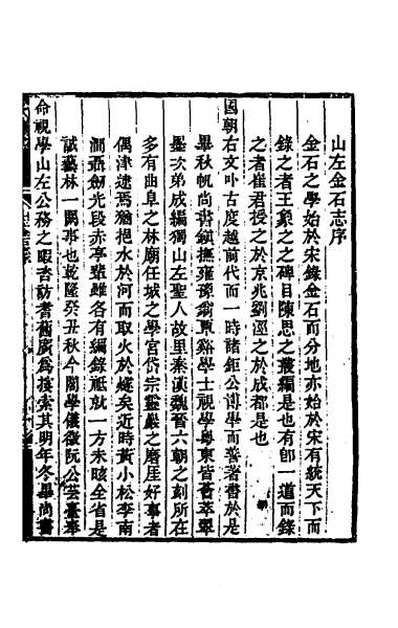 山左金石志序
金石之學始於宋錄金石而分地亦始於宋有統天下而
錄之者王象之之碑目陳思之叢編是也有卽一道而錄
之者崔君授之於京兆劉涇之於成都是也
國朝右文叶古度越前代而一時諸鉅公博學而善著書於是
畢秋帆尚書鎮撫雍豫翁覃谿學士視學粵東皆薈萃翠
墨次第成編獨山左聖人故里秦漢魏晉六朝之刻所在
多有曲阜之林廟任城之學宮岱宗靈巖之磨厓好事者
偶津逮焉猶挹水於河而取火於燧矣近時黃小松李南
澗聶劍光段赤亭輩雖各有編錄祗就一方未晐全省是
誠藝林一闕事也乾隆癸丑秋今閣學儀徵阮公芸臺奉
命視學山左公務之暇咨訪耆舊廣為搜索其明年冬畢尚書